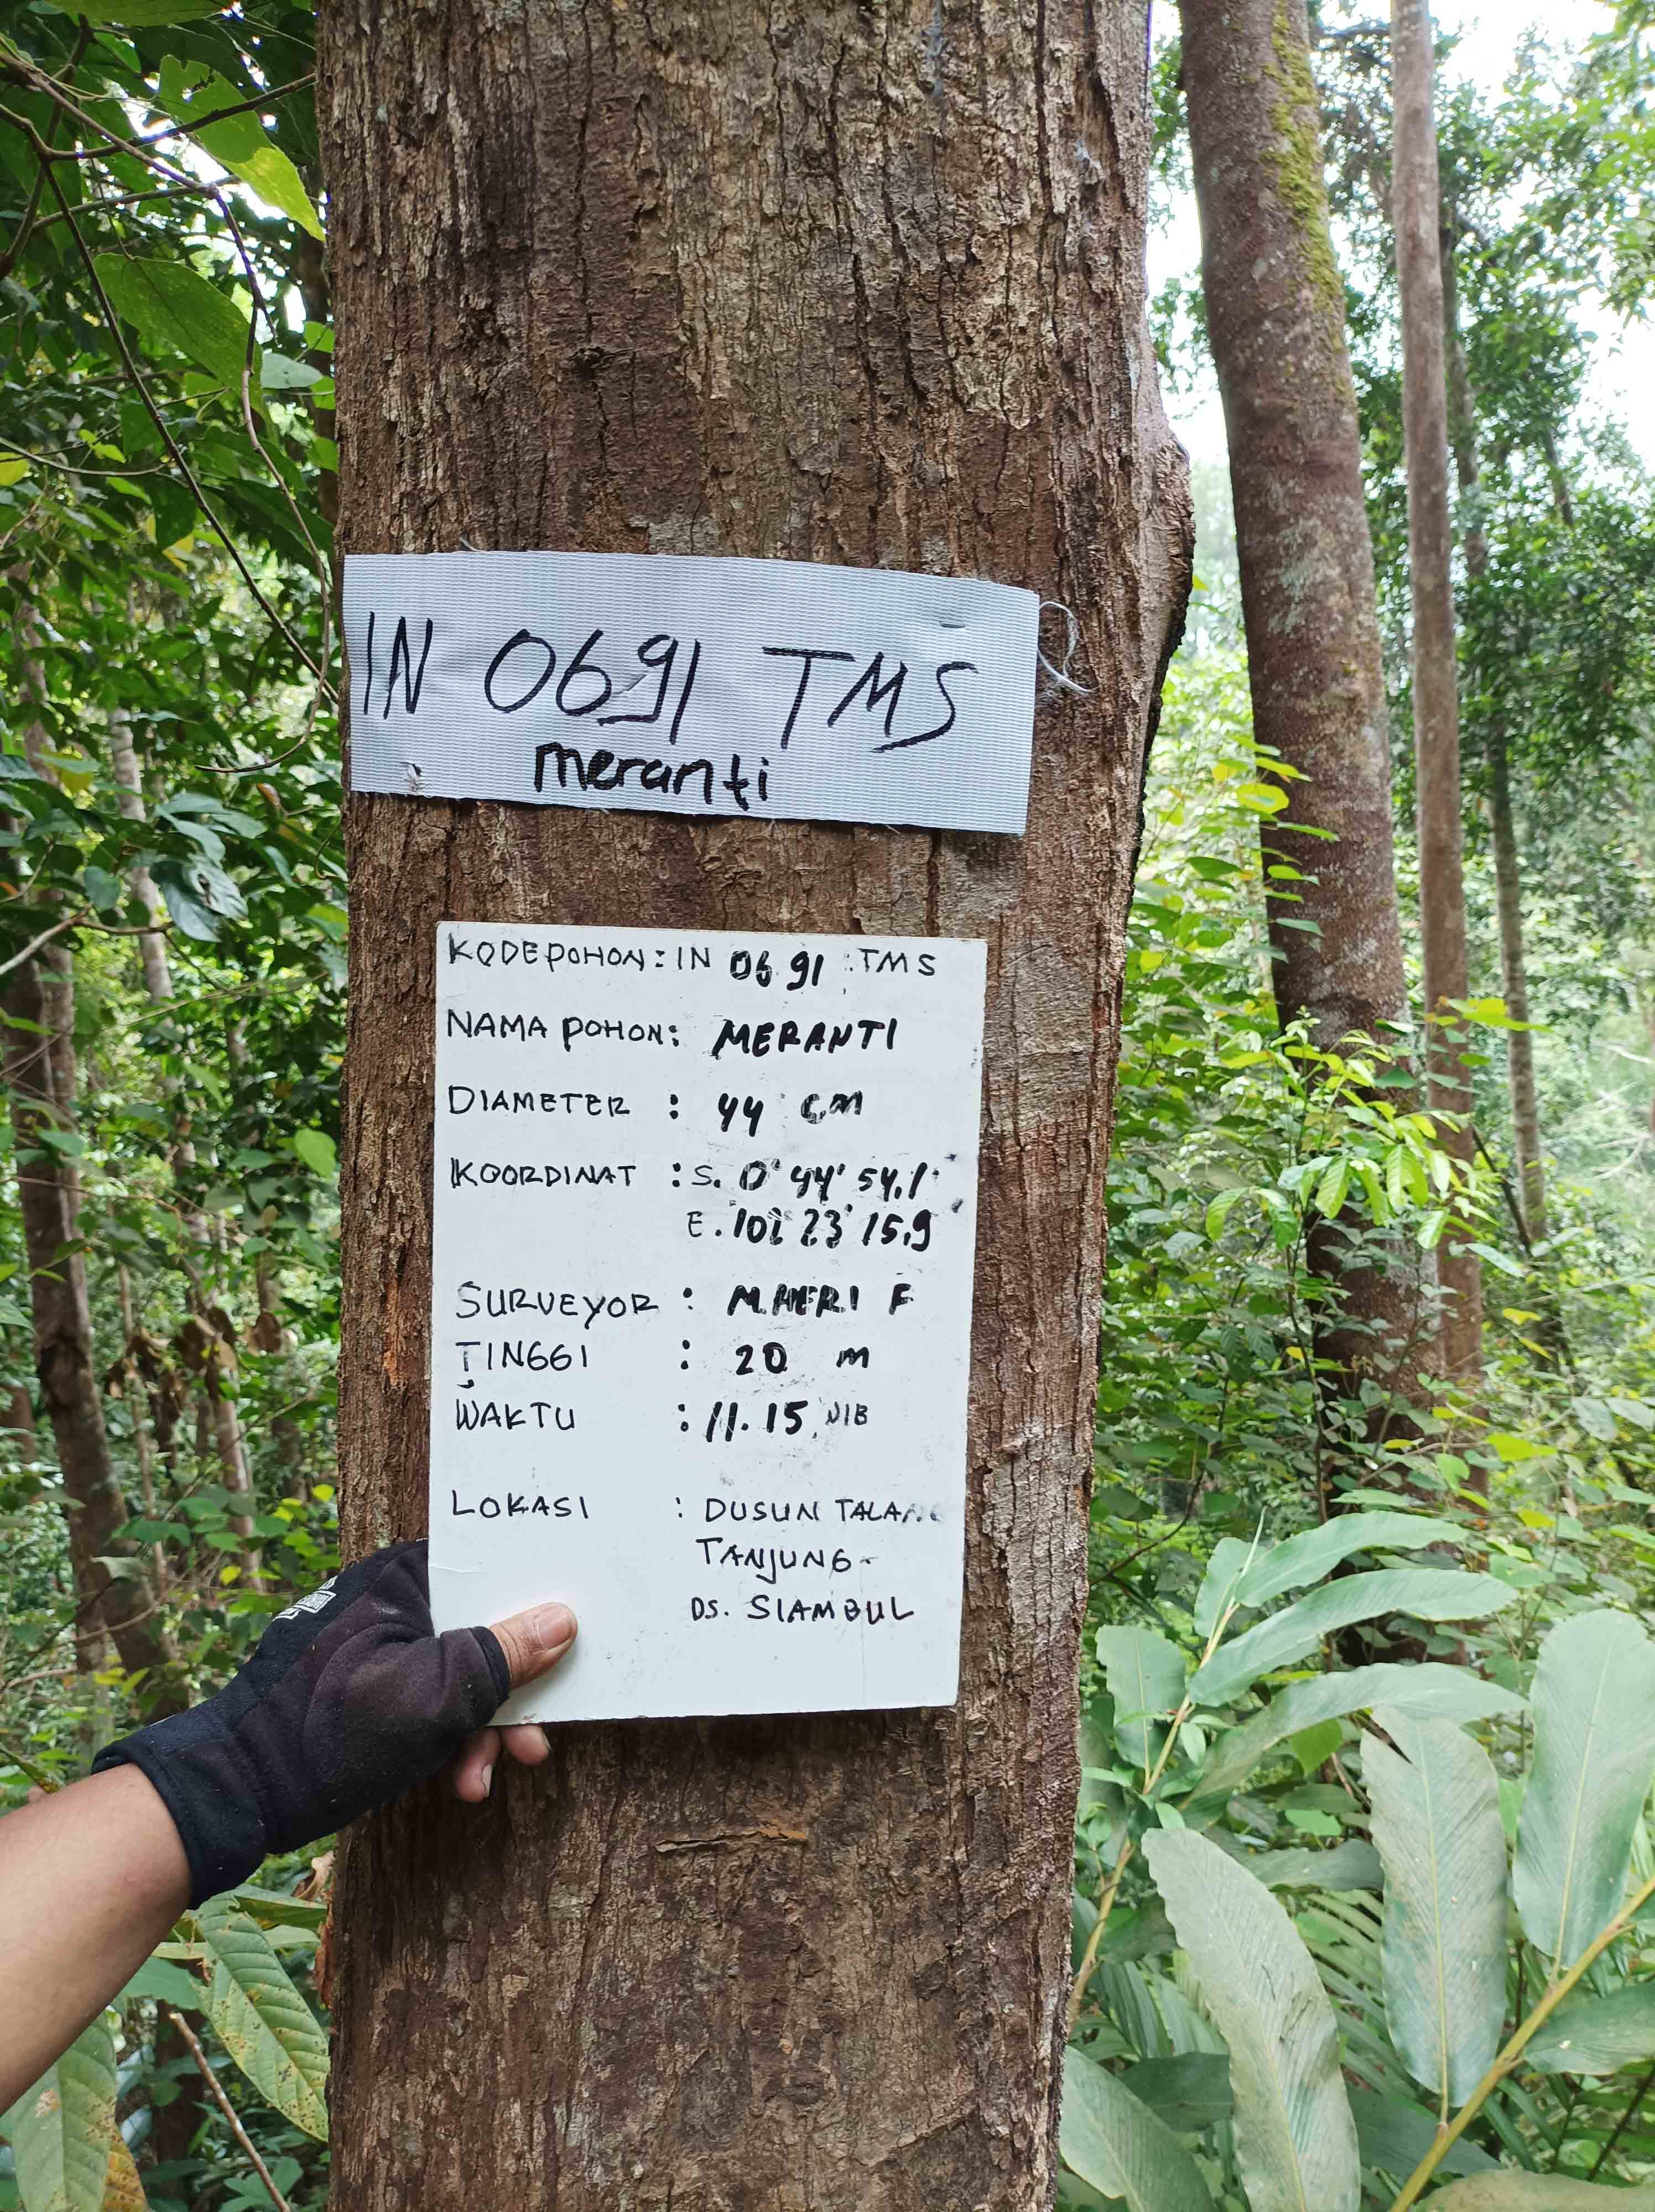 IN 0691 TMS
meranti
KODE POHON : IN 0691 TMS
NAMA POHON : MERANTI
DIAMETER : 44 CM
KOORDINAT : S. 0° 44' 54,1"
E. 102° 23' 15,9
SURVEYOR : M.HERI F
TINGGI : 20 M
WAKTU : 11.15 WIB
LOKASI : DUSUN TALANG
TANJUNG
DS. SIAMBUL